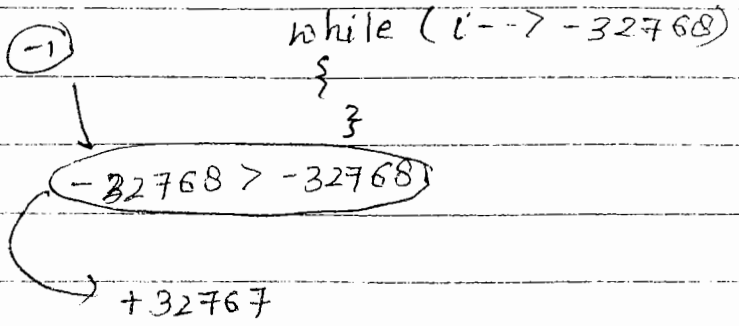 while (i--> -32768)
-1
{
}
-32768 > -32768
+32767